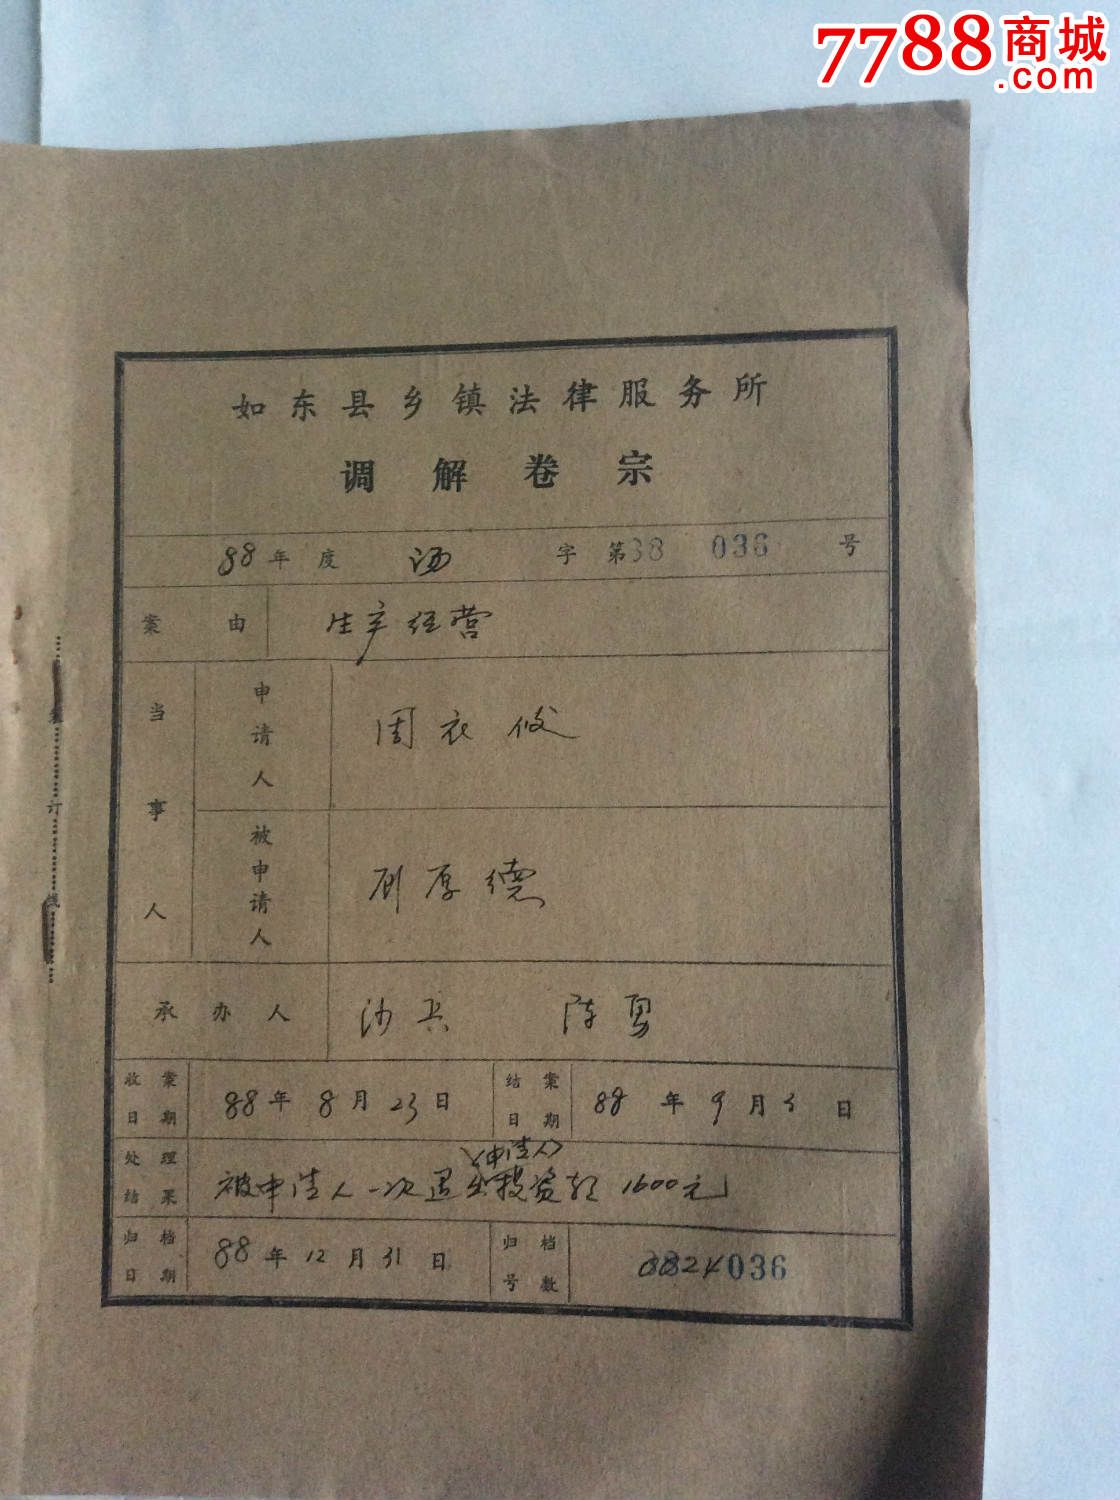 7788商城
.com
如东县乡镇法律服务所
调解卷宗
88年度 汤 字第88 036 号
案由 生产经营
当事人
申请人 周衣俊
被申请人 厚德
承办人 沙兵 陈勇
收案日期 88年8月23日 结案日期 88年9月5日
(申请人)
处理结果 被申请人一次退出投资款1600元
归档日期 88年12月31日 归档号数 036
订线